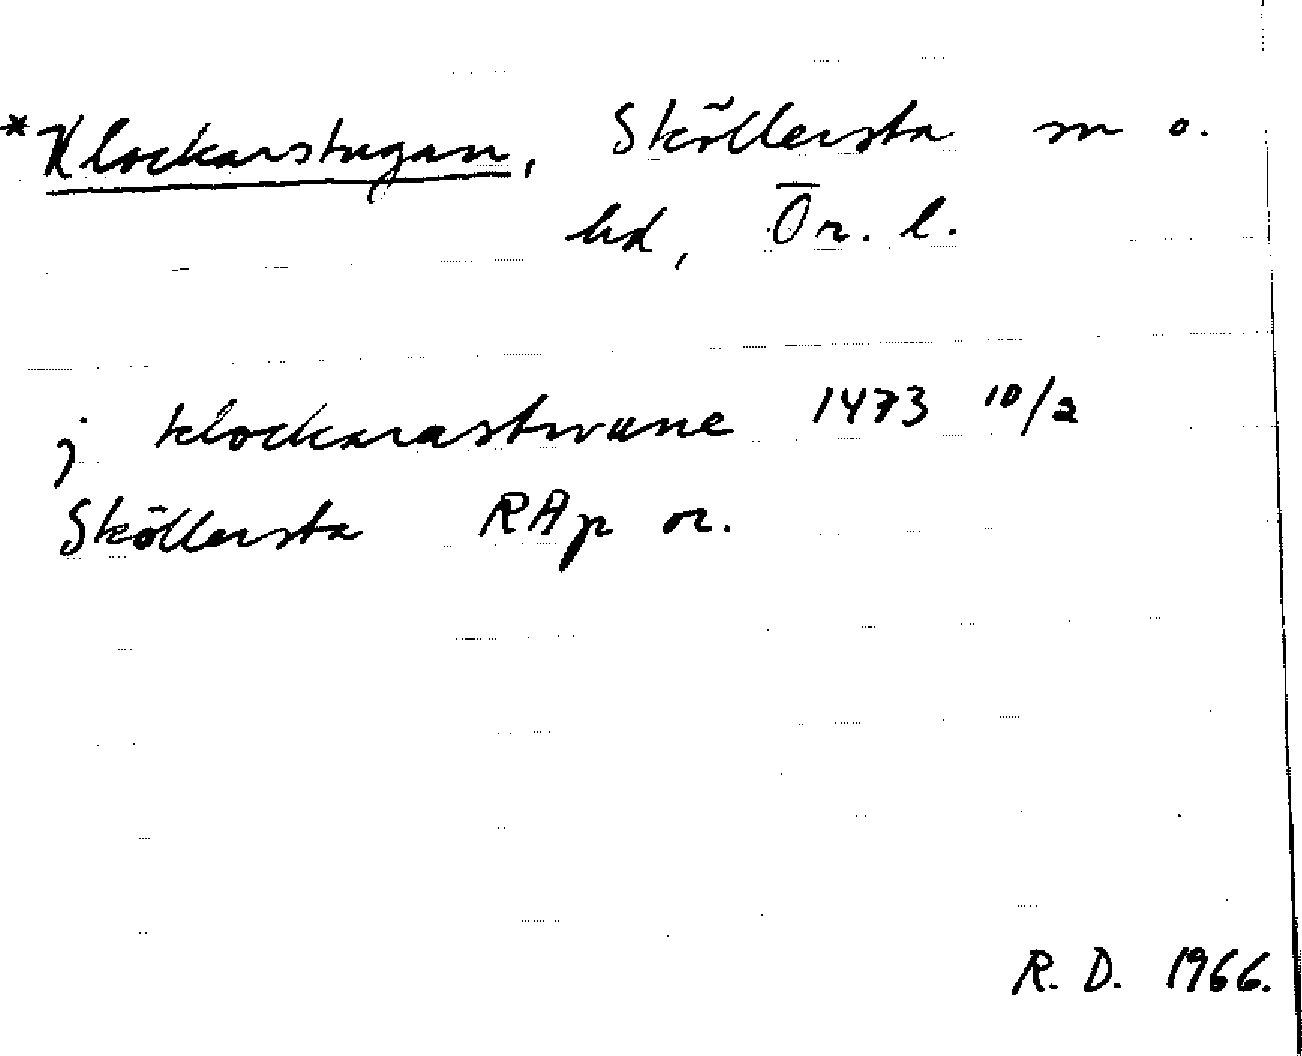 *Klockarstugan, Sköllersta sn o.
hd, Ör. l.
j klockarastwune 1473 10/2
Sköllersta RAp or.
R. D. 1966.